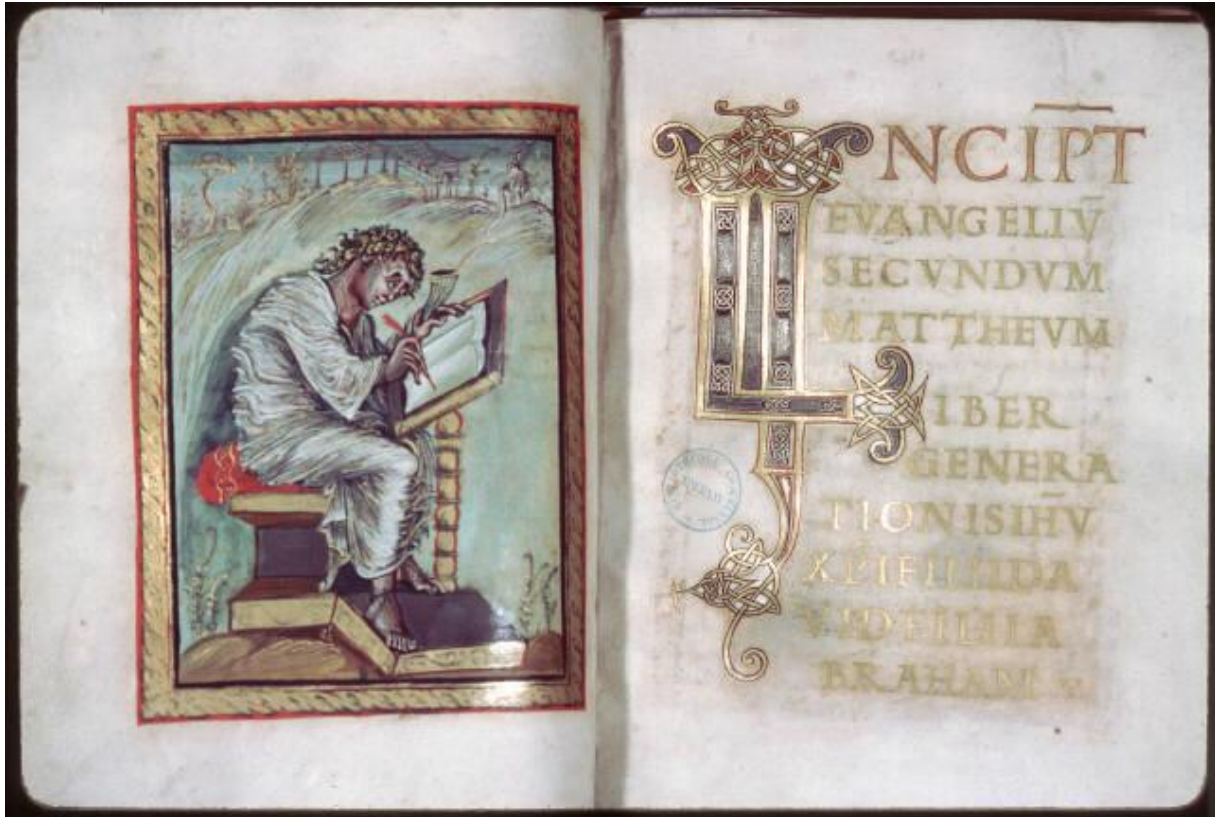 INCIP̄T
EVANGELIV̄
SECVNDVM
MATTHEVM
LIBER
GENERA
TIONISIH̄V
XP̄IFILIIDA
VIDFILIIA
BRAHAM